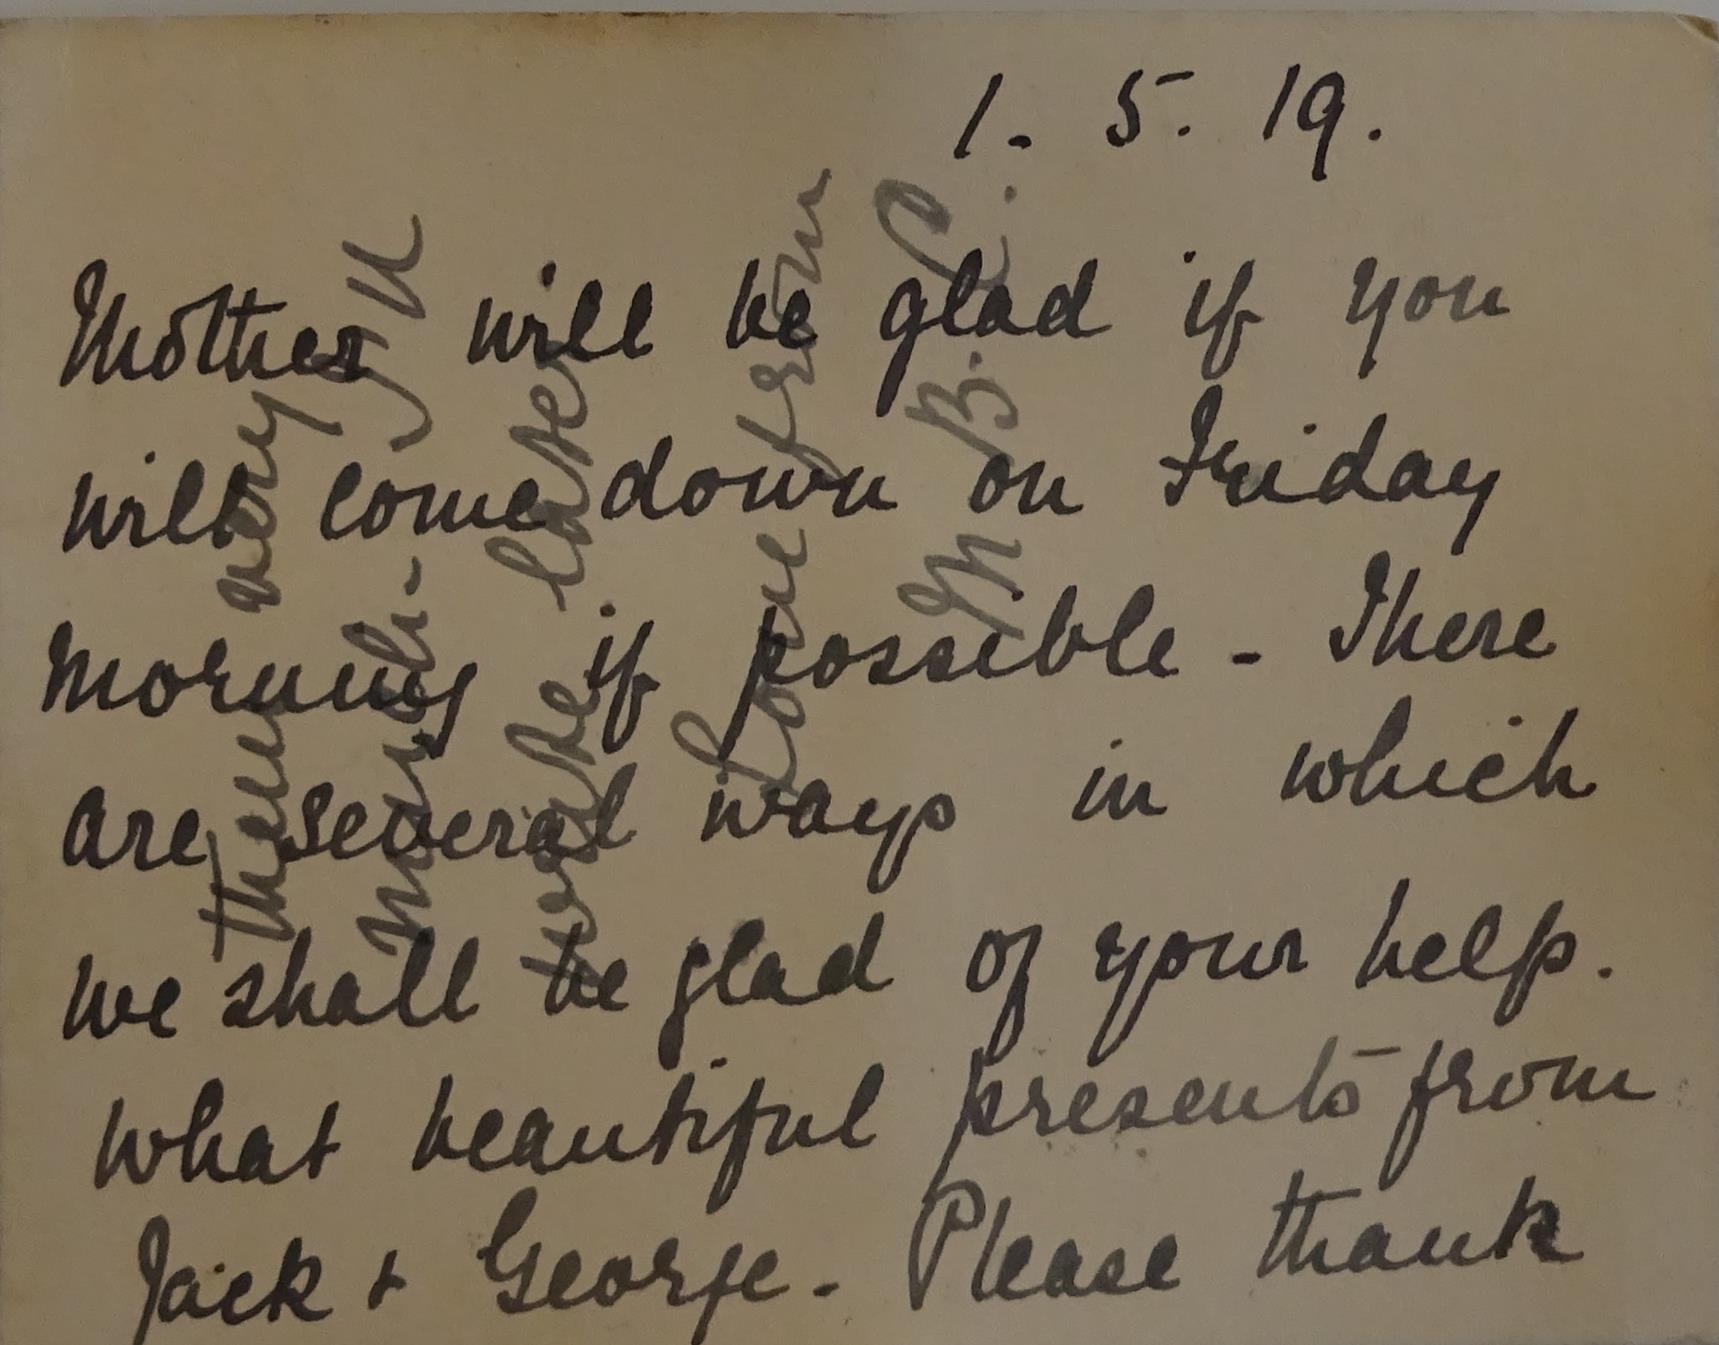 1. 5. 19.
Mother will be glad if you
will come down on Friday
morning if possible - There
are several ways in which
we shall be glad of your help.
What beautiful presents from
Jack + George. Please thank
them very
much - I'll
write later
Love from
M. B. C.